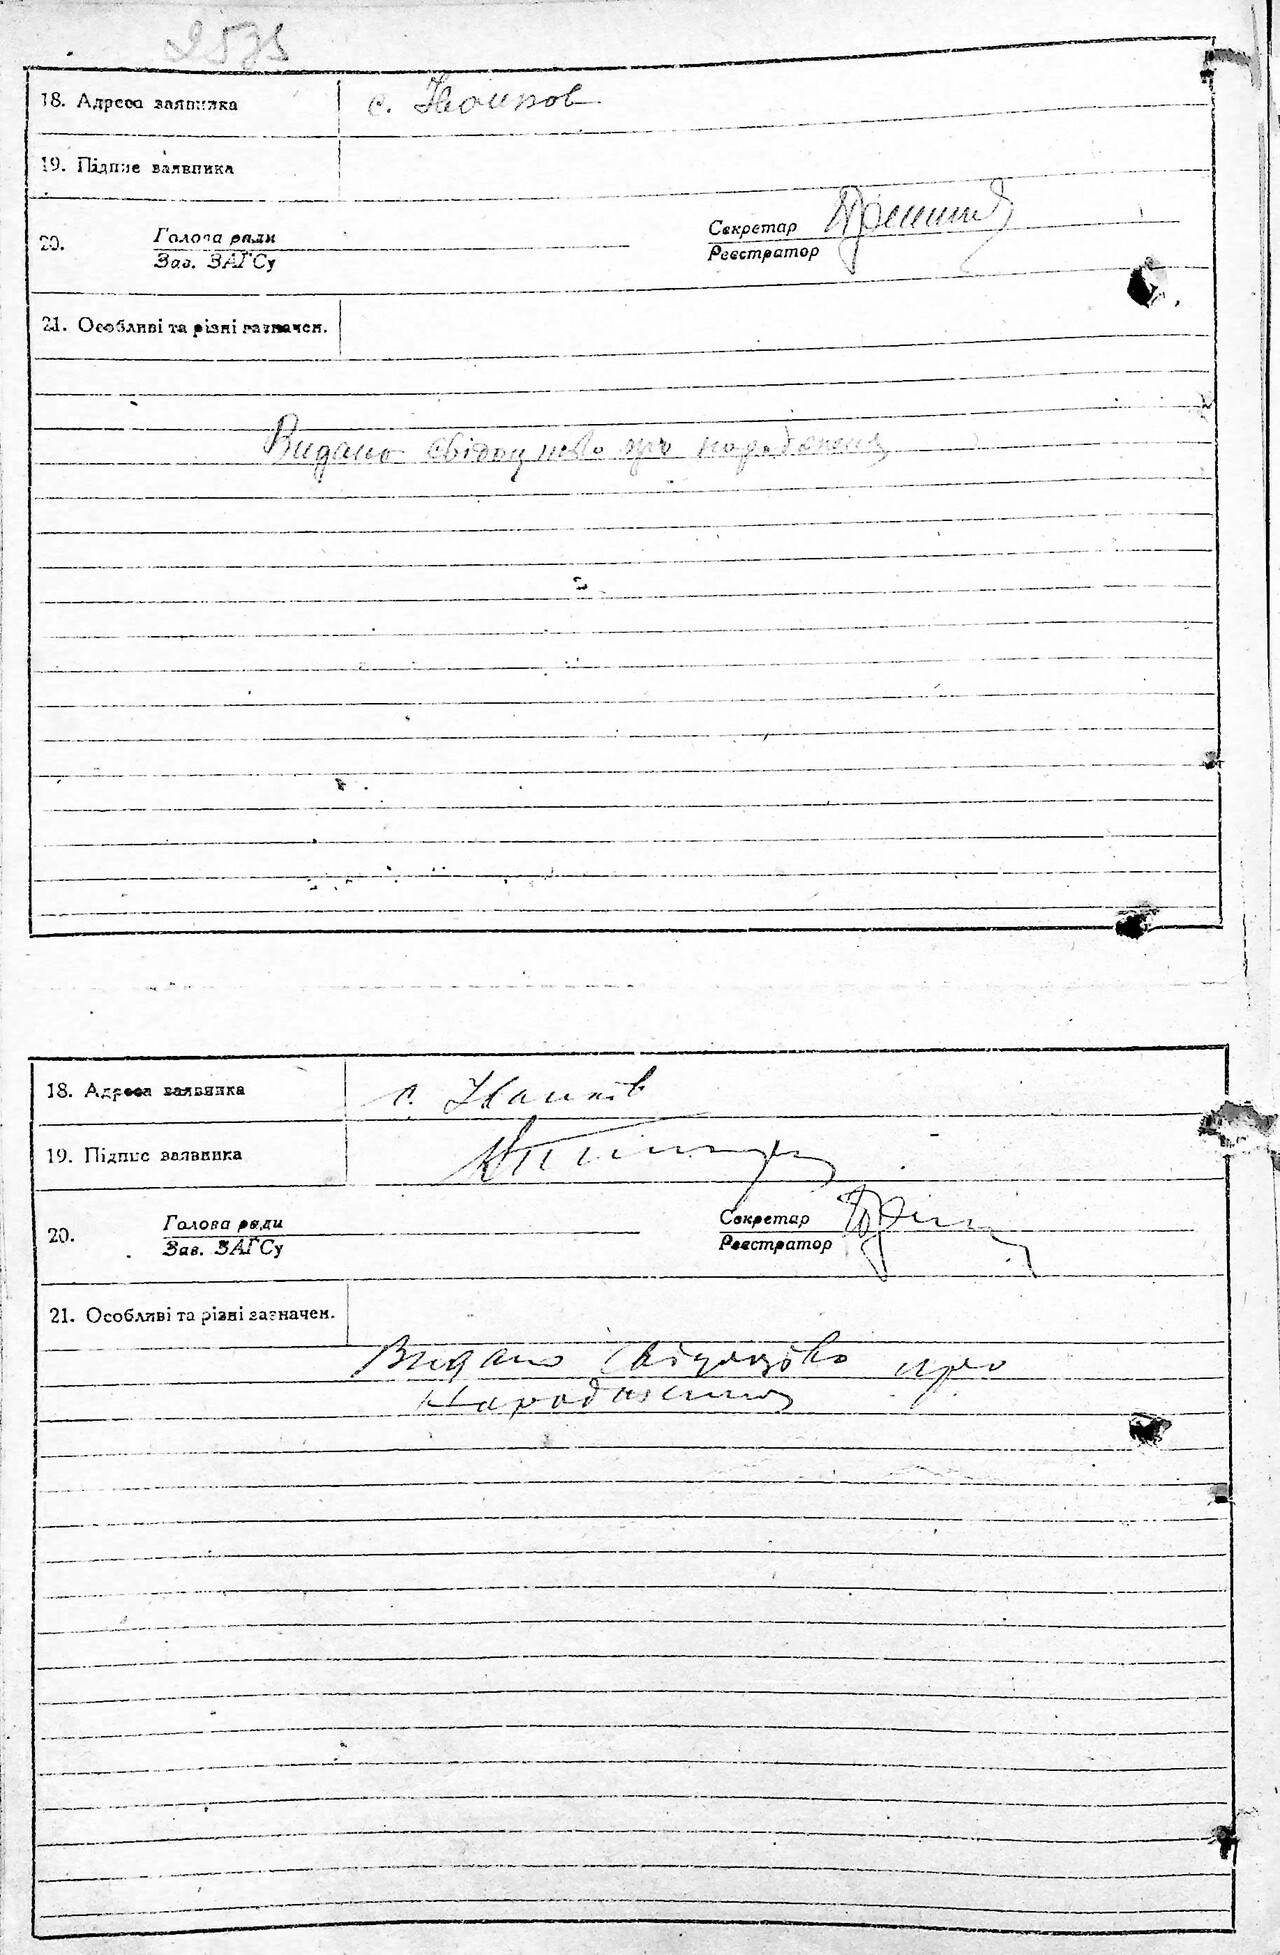 18. Адреса заявника с. Іванков
19. Підпис заявника
20. Голова ради Секретар
Зав. ЗАГСу Реєстратор
21. Особливі та різні зазначен.
Видано свідоцтво про народження
18. Адреса заявника с. Іванків
19. Підпис заявника
20. Голова ради Секретар
Зав. ЗАГСу Реєстратор
21. Особливі та різні зазначен.
Видано свідоцтво про
народження